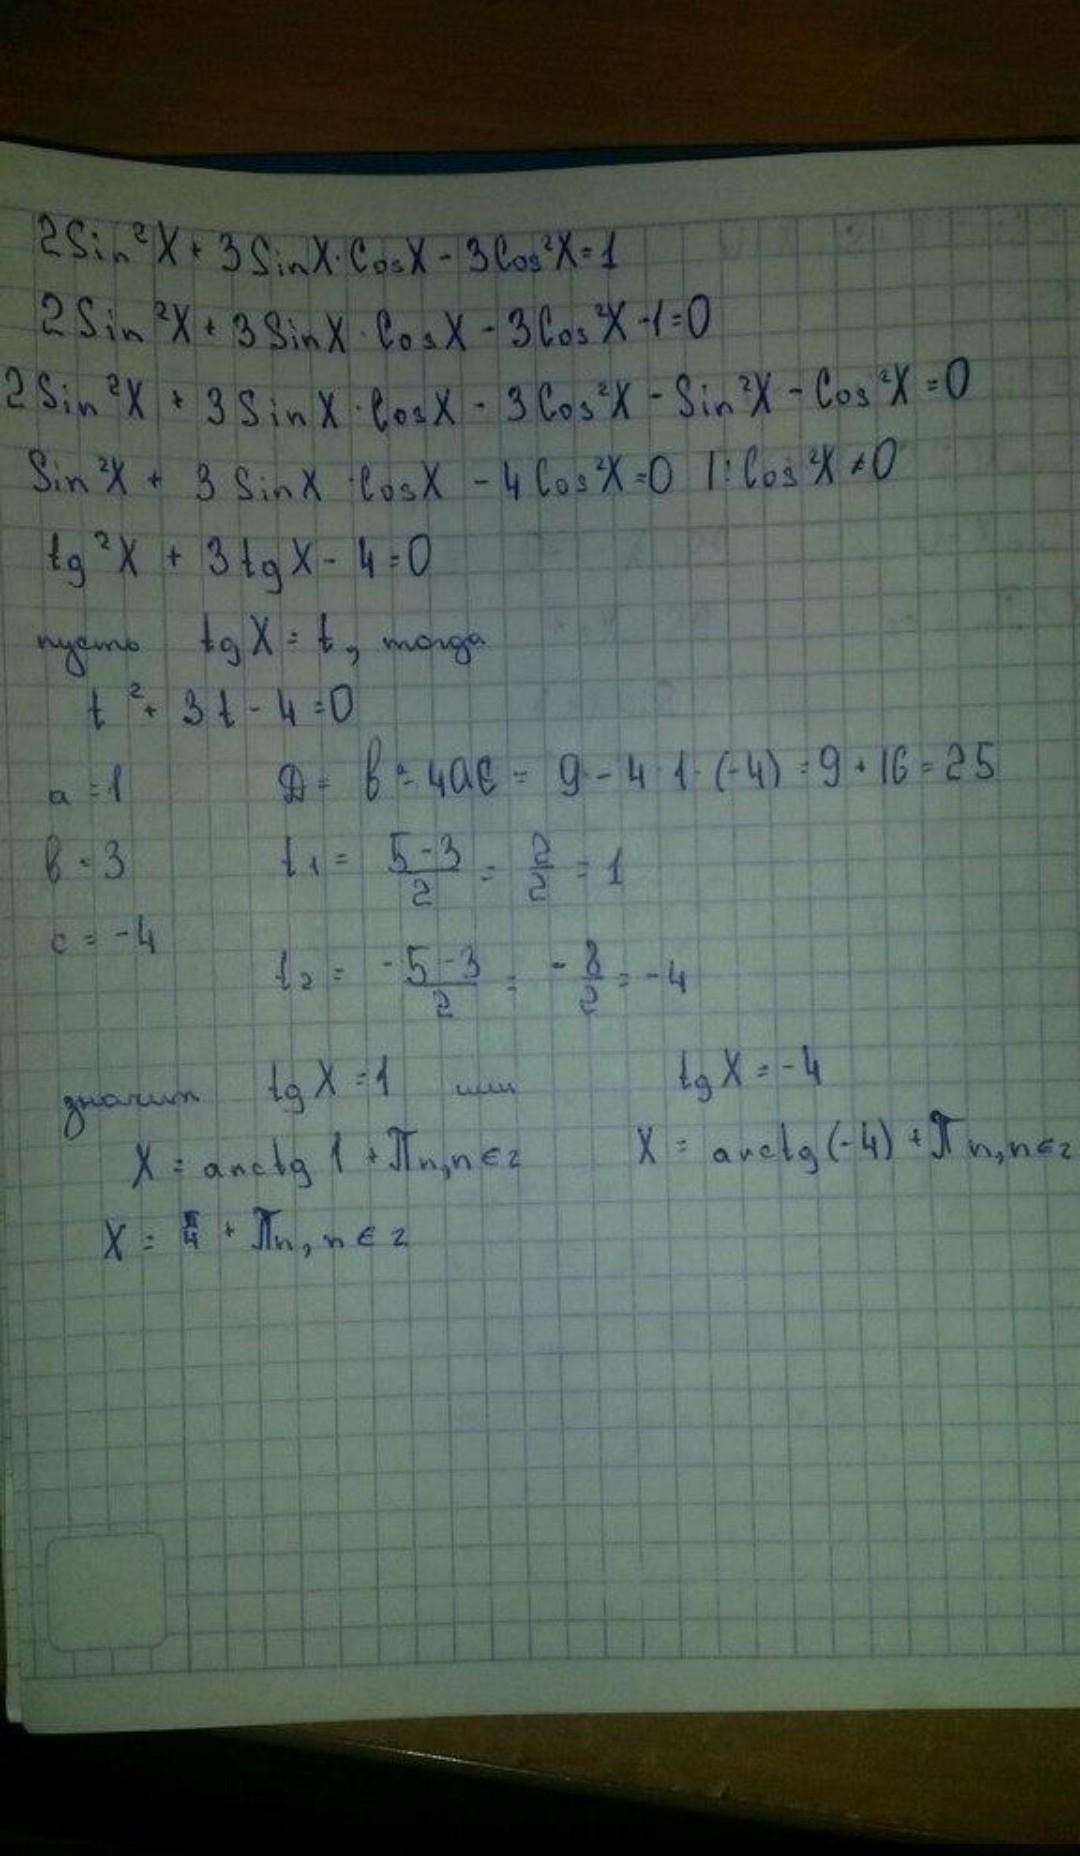 2Sin²X + 3SinX·CosX - 3Cos²X = 1
2Sin²X + 3SinX·CosX - 3Cos²X - 1 = 0
2Sin²X + 3SinX·CosX - 3Cos²X - Sin²X - Cos²X = 0
Sin²X + 3SinX·CosX - 4Cos²X = 0 |:Cos²X ≠ 0
tg²X + 3tgX - 4 = 0
пусть tgX = t, тогда
t² + 3t - 4 = 0
a = 1 D = b² - 4ac = 9 - 4·1·(-4) = 9 + 16 = 25
b = 3 t₁ = (5-3)/2 = 2/2 = 1
c = -4 t₂ = (-5-3)/2 = -8/2 = -4
значит tgX = 1 или tgX = -4
X = arctg 1 + πn, n∈z X = arctg(-4) + πn, n∈z
X = π/4 + πn, n∈z